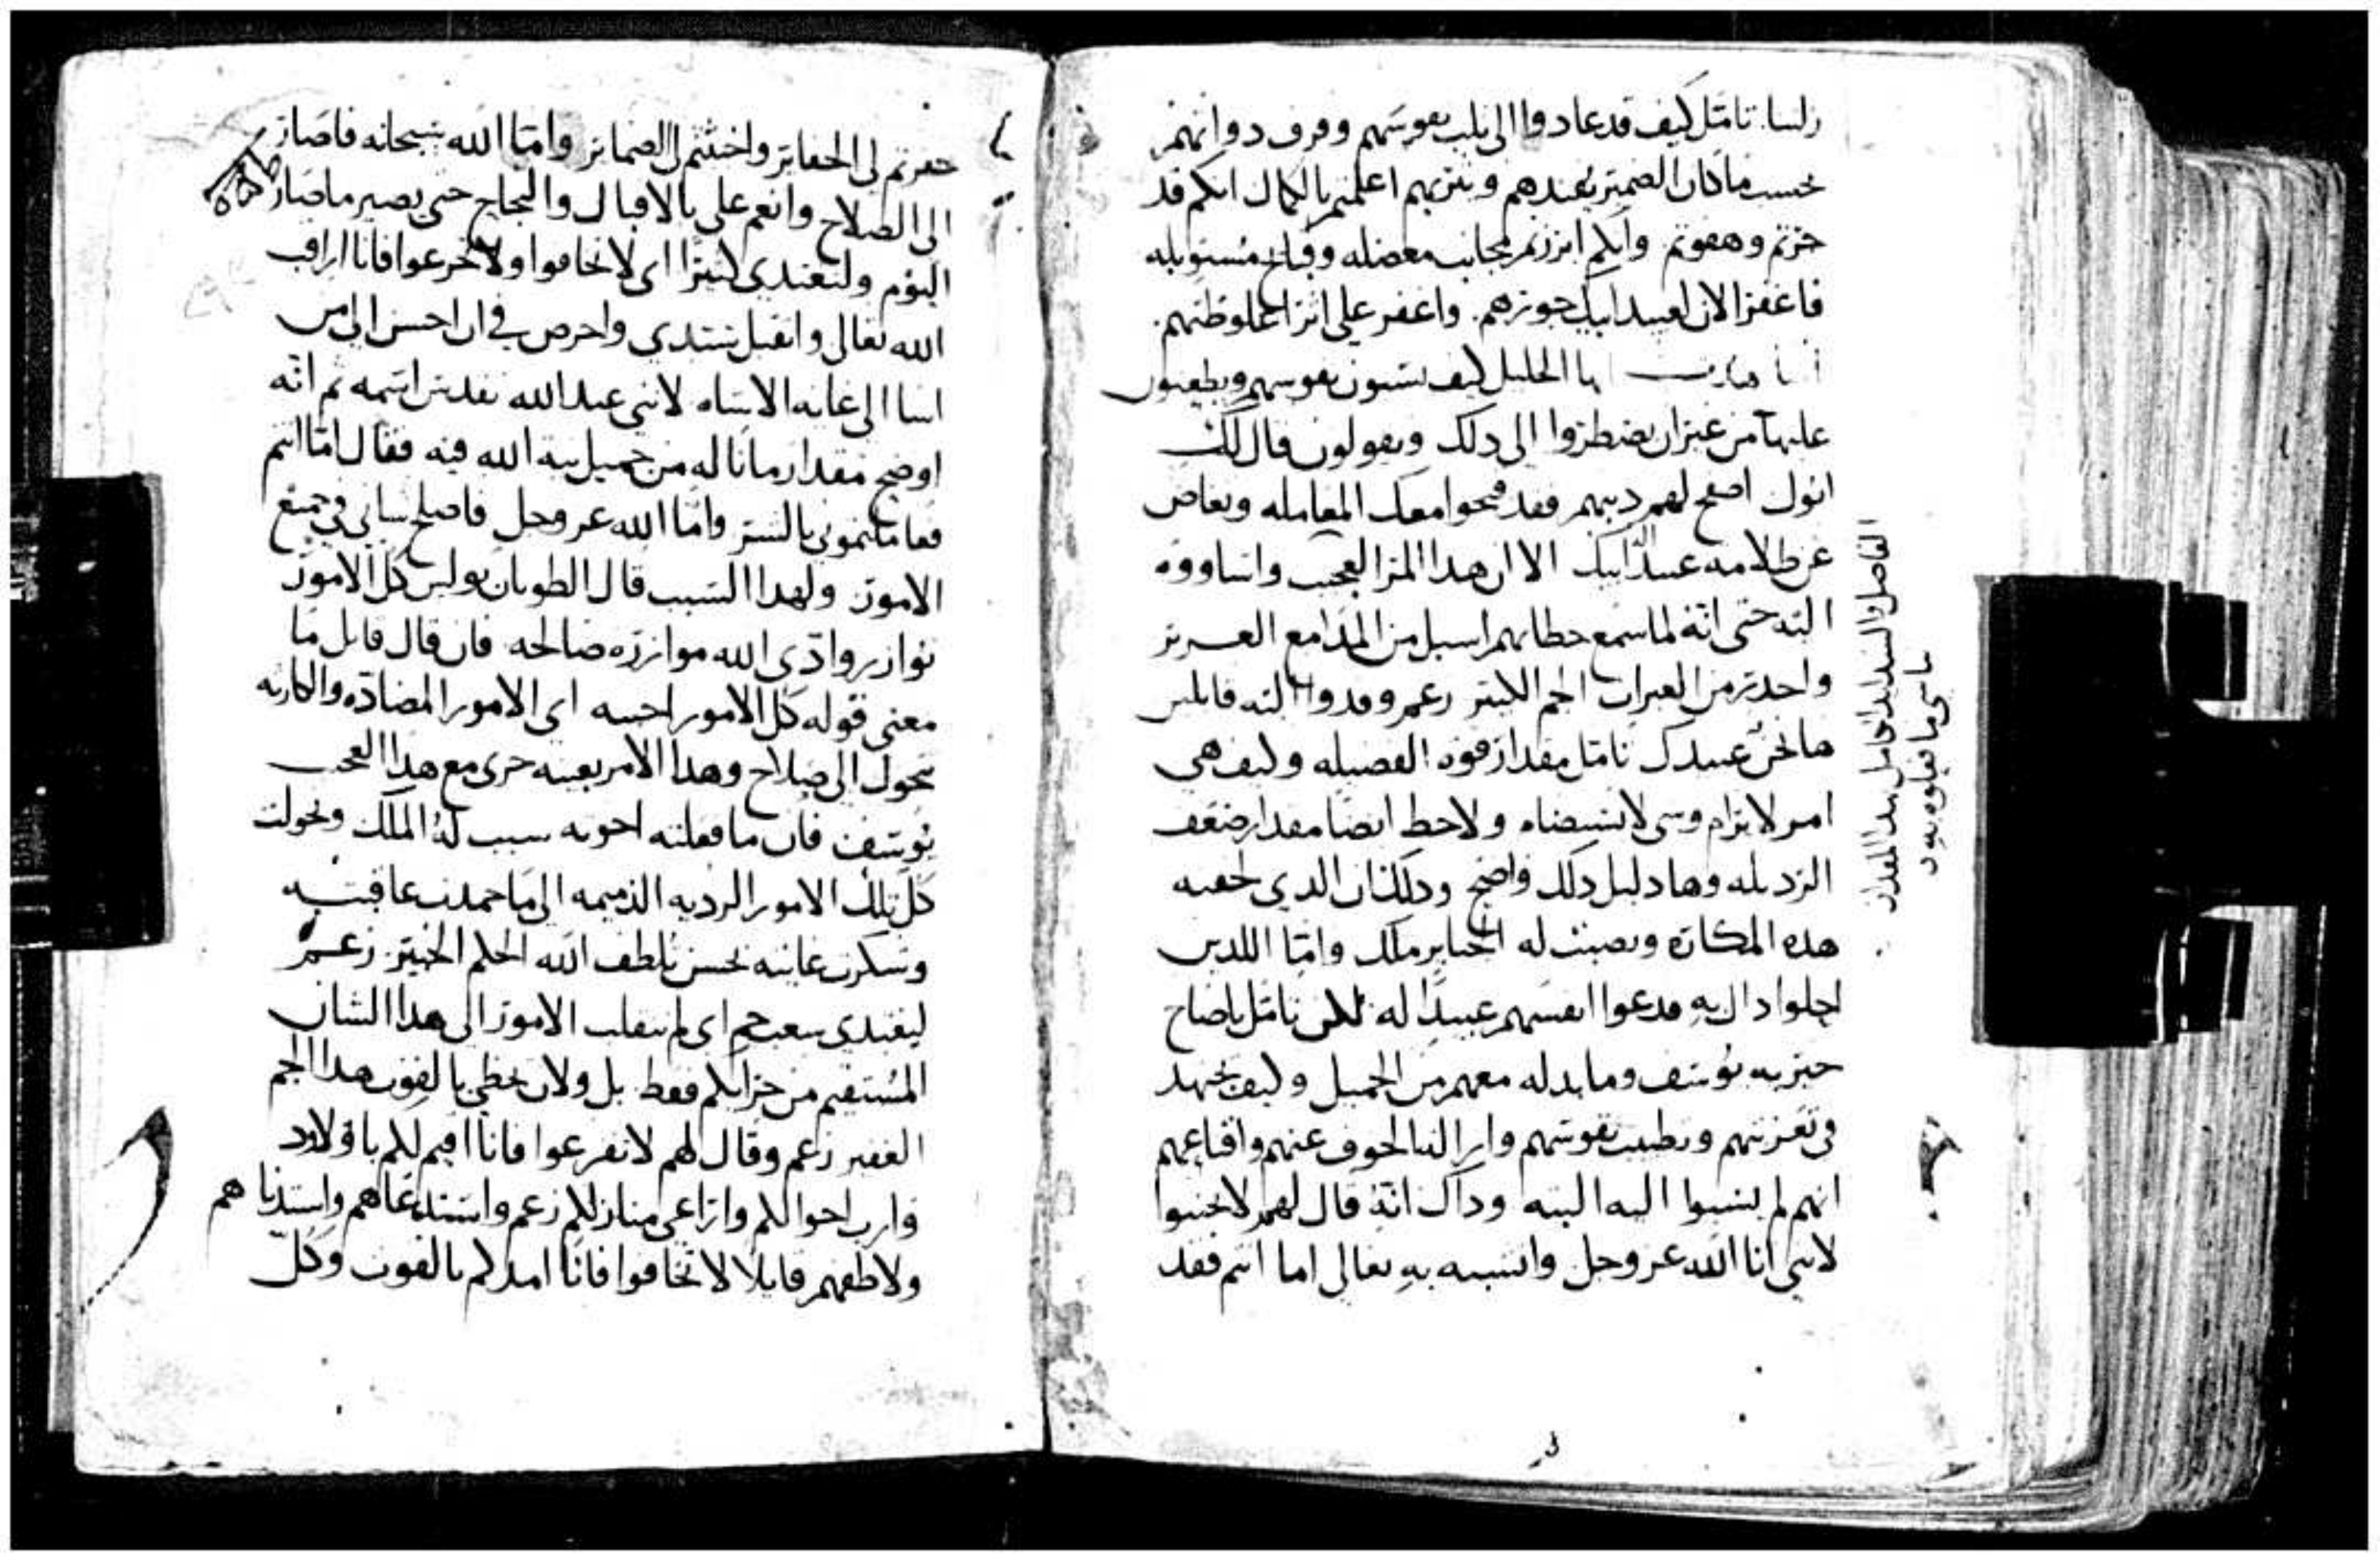 زلسا. تامّل كيف قد عادوا الى ثلب نفوسهم وقرف ذواتهم
بحسب ما كان الضمير يفندهم اعلمتم بالكمال انكم قد
جرتم وهفوتم وانكم ابرزتم مجانب معضله وقبايح مستوبله
فاغفر الان لعبيد ابيك جورهم. واغفر على اثر اغلوطتهم.
ايها الخليل كيف يثبون نفوسهم ويطعنون
عليها من غير ان يضطروا الى ذلك ويقولون قال لك
ابوك اصفح لهم ذنبهم فقد قبحوا معك المعامله وتغاض
عن ظلامة عبيد اله ابيك الا ان هذا المر العجيب وانساووه
البته حتى انّه لما سمع خطابهم اسبل من المدامع الغرير
واحدر من العبرات الجم الكثير زعم وفدوا اليه قايلين
ها نحن عبيدك تامل مقدار قوه الفضيله وكيف هي
امر لا يرام وشي لا يستضاه ولاحظ ايضا مقدار ضعف
الرذيله وها دليل ذلك واضح وذلك ان الذي لحقته
هذه المكاره ونصبت له الحباير ملك وامّا اللذين
احلوا ذاك به فدعوا انفسهم عبيدًا له لكن تامّل يا صاح
حيريه يوسف وما بذله معهم من الجميل وكيف يجتهد
في تعزيتهم وتطييب نفوسهم وازالة الخوف عنهم واقناعهم
انهم لم يسيوا اليه البته وذاك انّه قال لهم لا تخشوا
لانني انا لله عز وجل وانتسبه به تعالى اما انتم فقد
الفاضل والسند الحامل هذا المقدار
ناسى ما فعلوه يهود
حفرتم لي الحفاير واخبثتم لي الضماير وامّا الله سبحانه فاصار
الى الصلاح وانعم علي بالاقبال والنجاح حتى يصير ما صار
اليوم ولتغتدي كثيرًا اى لا تخافوا ولا تجزعوا فانا اراقب
الله تعالى واتقبل بسيدي واحرص في ان احسن الى من
اسا الى غاية الاساه لانني عبد الله تقدس اسمه ثم انّه
اوضح مقدار ما ناله من جميل نية الله فيه فقال امّا انتم
فعاملتموني بالشر وامّا الله عز وجل فاصلح شاني في جميع
الامور ولهذا السبب قال الطوبان بولس كل الامور
توازر وادّي الله موازره صالحه فان قال قايل ما
معنى قوله كل الامور اجبته اى الامور المضادّه والكارثه
تتحول الى صلاح وهذا الامر بعينه جرى مع هذا العجيب
يوسف فان ما فعلته اخوته سبب له الملك وتحولت
كل تلك الامور الرديه الذميمه الى ما حمدت عاقبته
وشكرت غايته بحسن تلطف الله الحكم الخبير زعم
ليغتدي شعب جم اى لم تنقلب الامور الى هذا الشان
المستقيم من جرايكم فقط بل ولان يحظى بالقوت هذا الجم
الغفير زعم وقال لهم لا تفزعوا فانا اقيم لكم بالاود
وارب احوالكم واراعي منازلكم زعم واستدعاهم واستدناهم
ولاطفهم قايلا لا تخافوا فانا امدكم بالقوت وكلّ